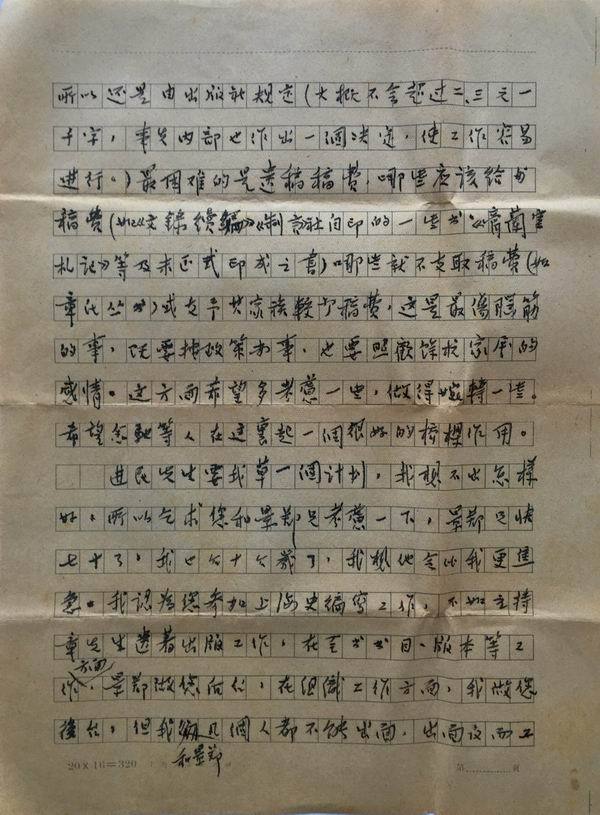 所以还是由出版社规定(大概不会超过二、三元一
千字，事先内部也作出一個决定，使工作容易
进行。)最困难的是遗稿稿费，哪些应该给书
稿费(如《文録續編》《制言社自印的一些书《菿蘭室
札记》等及未正式印成之書)哪些就不支取稿费(如
章氏丛书)或支予其家族較少稿费，这是最傷腦筋
的事，既要按政策办事，也要照顧餘杭家属的
感情。这方面希望多考慮一些，做得婉轉一些。
希望您馳等人在这裏起一個很好的橋樑作用。
进民先生要我草一個计划，我想不出怎样
好，所以乞求您和景郑兄考慮一下，景郑兄快
七十了，我也六十六歲了，我想他会比我更焦
急。我認为您参加上海史编寫工作，不如主持
章先生遗著出版工作，在至书书目、版本等工
作方面，景郑做您后台，在组織工作方面，我做您
後台，但我和景郑几個人都不能出面，出面反而工
20×16=320
第 頁